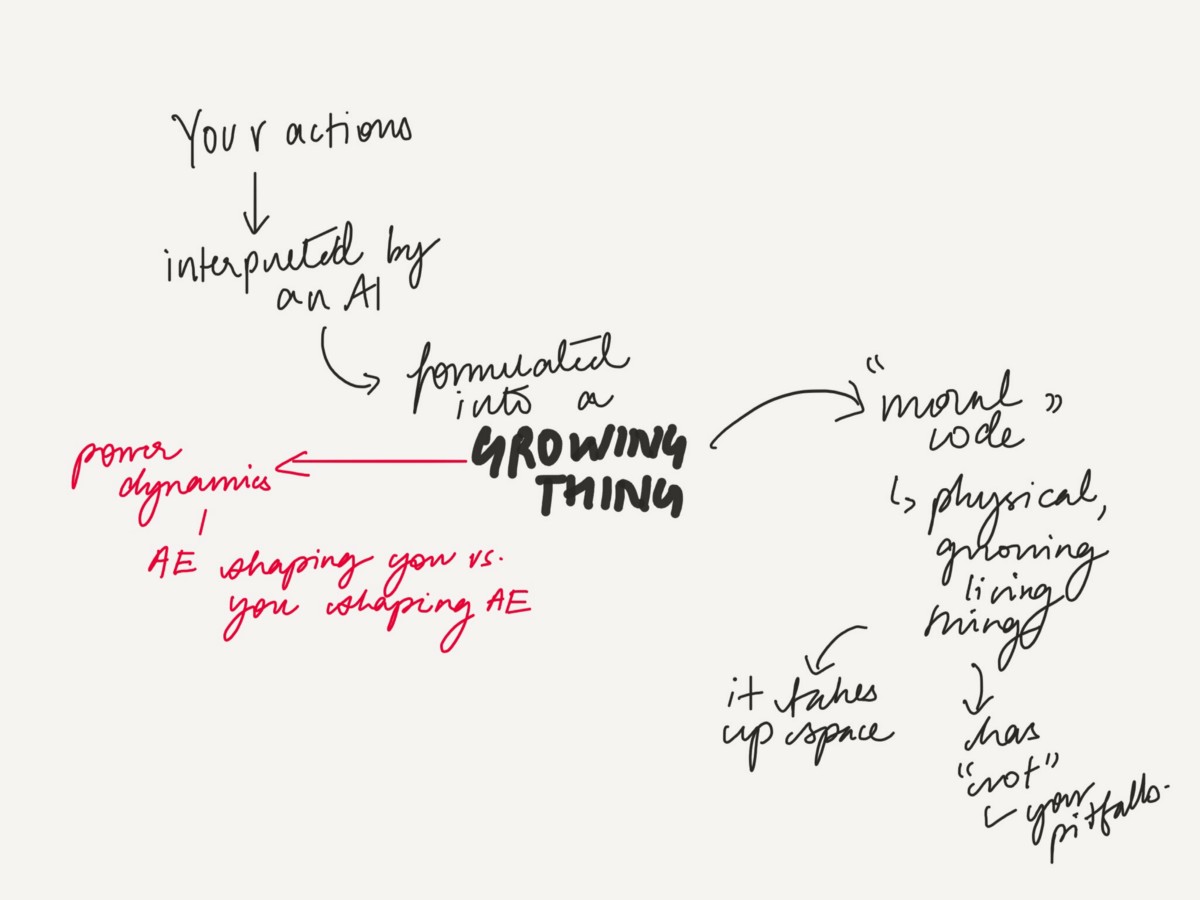 Your actions
interpreted by
an AI
formulated
into a
GROWING
THING
"moral
code"
physical,
growing
living
thing
it takes
up space
has
"rot"
your
pitfalls.
power
dynamics
AE shaping you vs.
you shaping AE